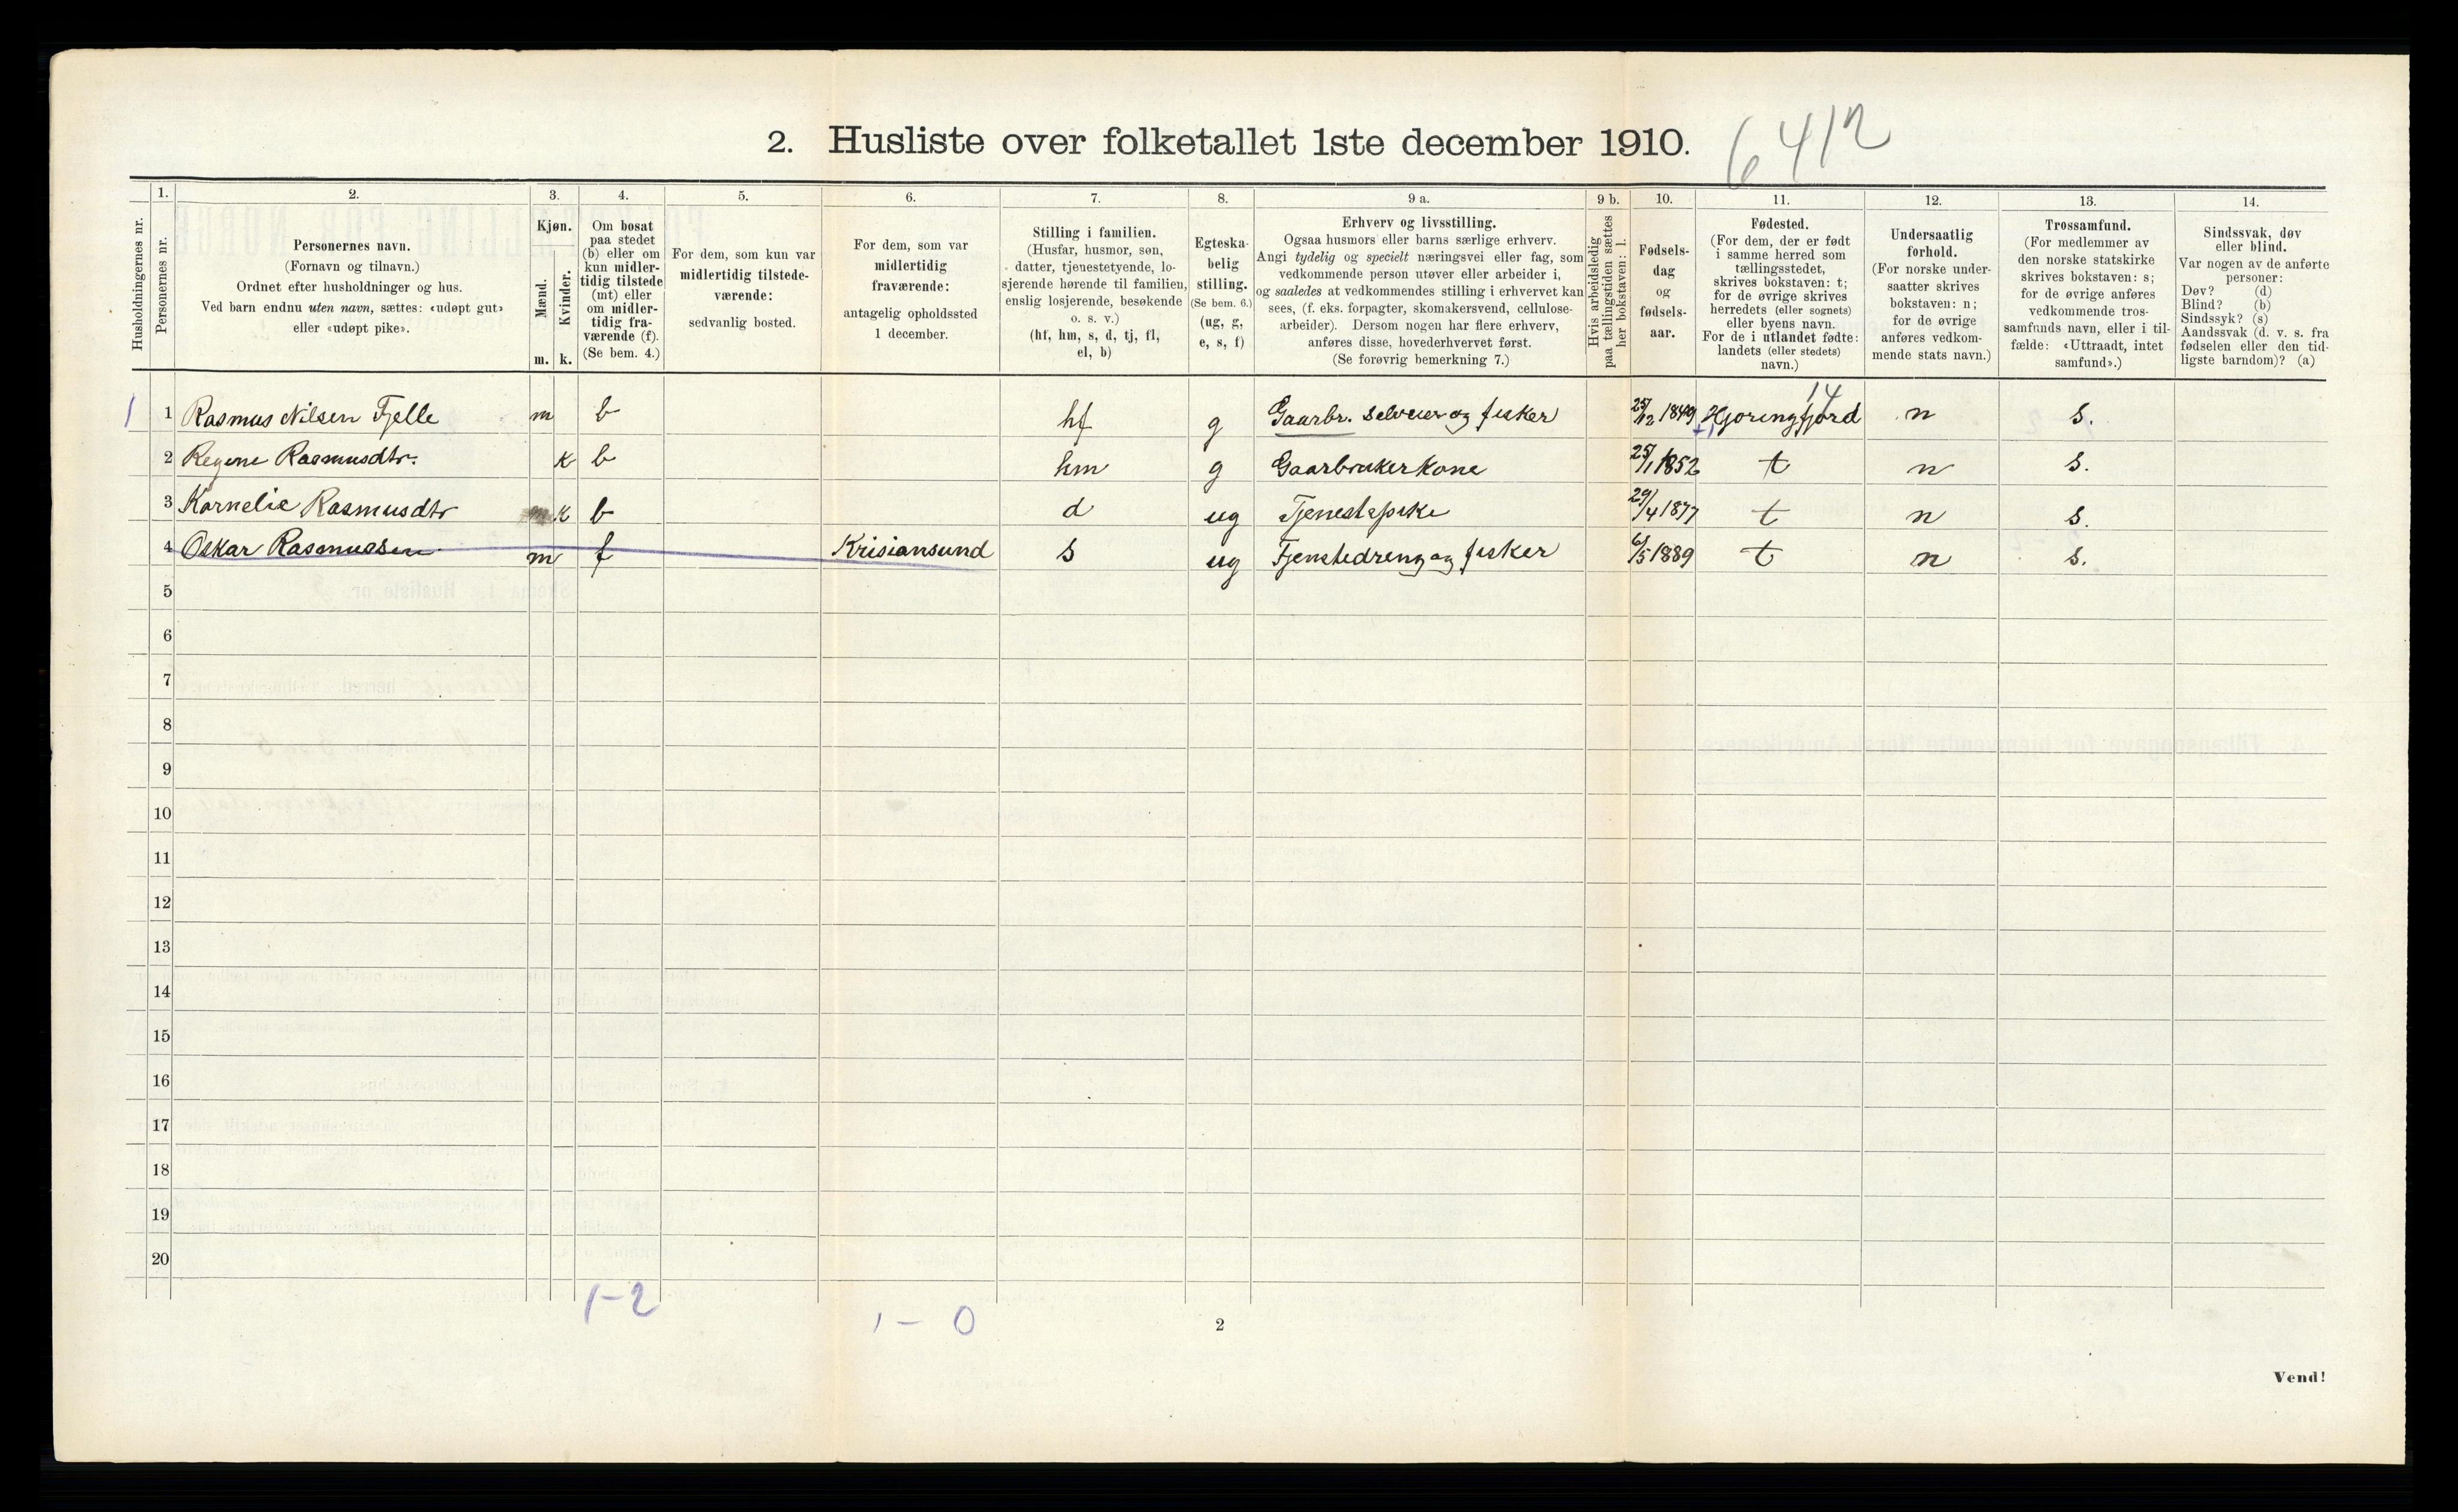 2. Husliste over folketallet 1ste december 1910.
6412
Husholdningernes nr.
1.
Personernes nr.
2.
Personernes navn.
(Fornavn og tilnavn.)
Ordnet efter husholdninger og hus.
Ved barn endnu uten navn, sættes: «udøpt gut»
eller «udøpt pike».
3.
Kjøn.
Mænd.
Kvinder.
m. k.
4.
Om bosat
paa stedet
(b) eller om
kun midler-
tidig tilstede
(mt) eller
om midler-
tidig fra-
værende (f).
(Se bem. 4.)
5.
For dem, som kun var
midlertidig tilstede-
værende:
sedvanlig bosted.
6.
For dem, som var
midlertidig
fraværende:
antagelig opholdssted
1 december.
7.
Stilling i familien.
(Husfar, husmor, søn,
datter, tjenestetyende, lo-
sjerende hørende til familien,
enslig losjerende, besøkende
o. s. v.)
(hf, hm, s, d, tj, fl,
el, b)
8.
Egteska-
belig
stilling.
(Se bem. 6.)
(ug, g,
e, s, f)
9 a.
Erhverv og livsstilling.
Ogsaa husmors eller barns særlige erhverv.
Angi tydelig og specielt næringsvei eller fag, som
vedkommende person utøver eller arbeider i,
og saaledes at vedkommendes stilling i erhvervet kan
sees, (f. eks. forpagter, skomakersvend, cellulose-
arbeider). Dersom nogen har flere erhverv,
anføres disse, hovederhvervet først.
(Se forøvrig bemerkning 7.)
9 b.
Hvis arbeidsledig
paa tællingstiden sættes
her bokstaven: l.
10.
Fødsels-
dag
og
fødsels-
aar.
11.
Fødested.
(For dem, der er født
i samme herred som
tællingsstedet,
skrives bokstaven: t;
for de øvrige skrives
herredets (eller sognets)
eller byens navn.
For de i utlandet fødte:
landets (eller stedets)
navn.)
12.
Undersaatlig
forhold.
(For norske under-
saatter skrives
bokstaven: n;
for de øvrige
anføres vedkom-
mende stats navn.)
13.
Trossamfund.
(For medlemmer av
den norske statskirke
skrives bokstaven: s;
for de øvrige anføres
vedkommende tros-
samfunds navn, eller i til-
fælde: «Uttraadt, intet
samfund».)
14.
Sindssvak, døv
eller blind.
Var nogen av de anførte
personer:
Døv? (d)
Blind? (b)
Sindssyk? (s)
Aandssvak (d. v. s. fra
fødselen eller den tid-
ligste barndom)? (a)
14
1 1 Rasmus Nilsen Fjelle m b hf g Gaarbr. selveier og fisker 25/12 1849 Hjoringfjord n s.
2 Regine Rasmusdtr. k b hm g Gaarbrukerkone 25/1 1852 t n s.
3 Kornelie Rasmusdtr k b d ug Tjenestepike 29/4 1877 t n s.
4 Oskar Rasmussen m f Krisiansund s ug Tjenstedreng og fisker 6/5 1889 t n s.
5
6
7
8
9
10
11
12
13
14
15
16
17
18
19
20
1-2
1 - 0
2
Vend!